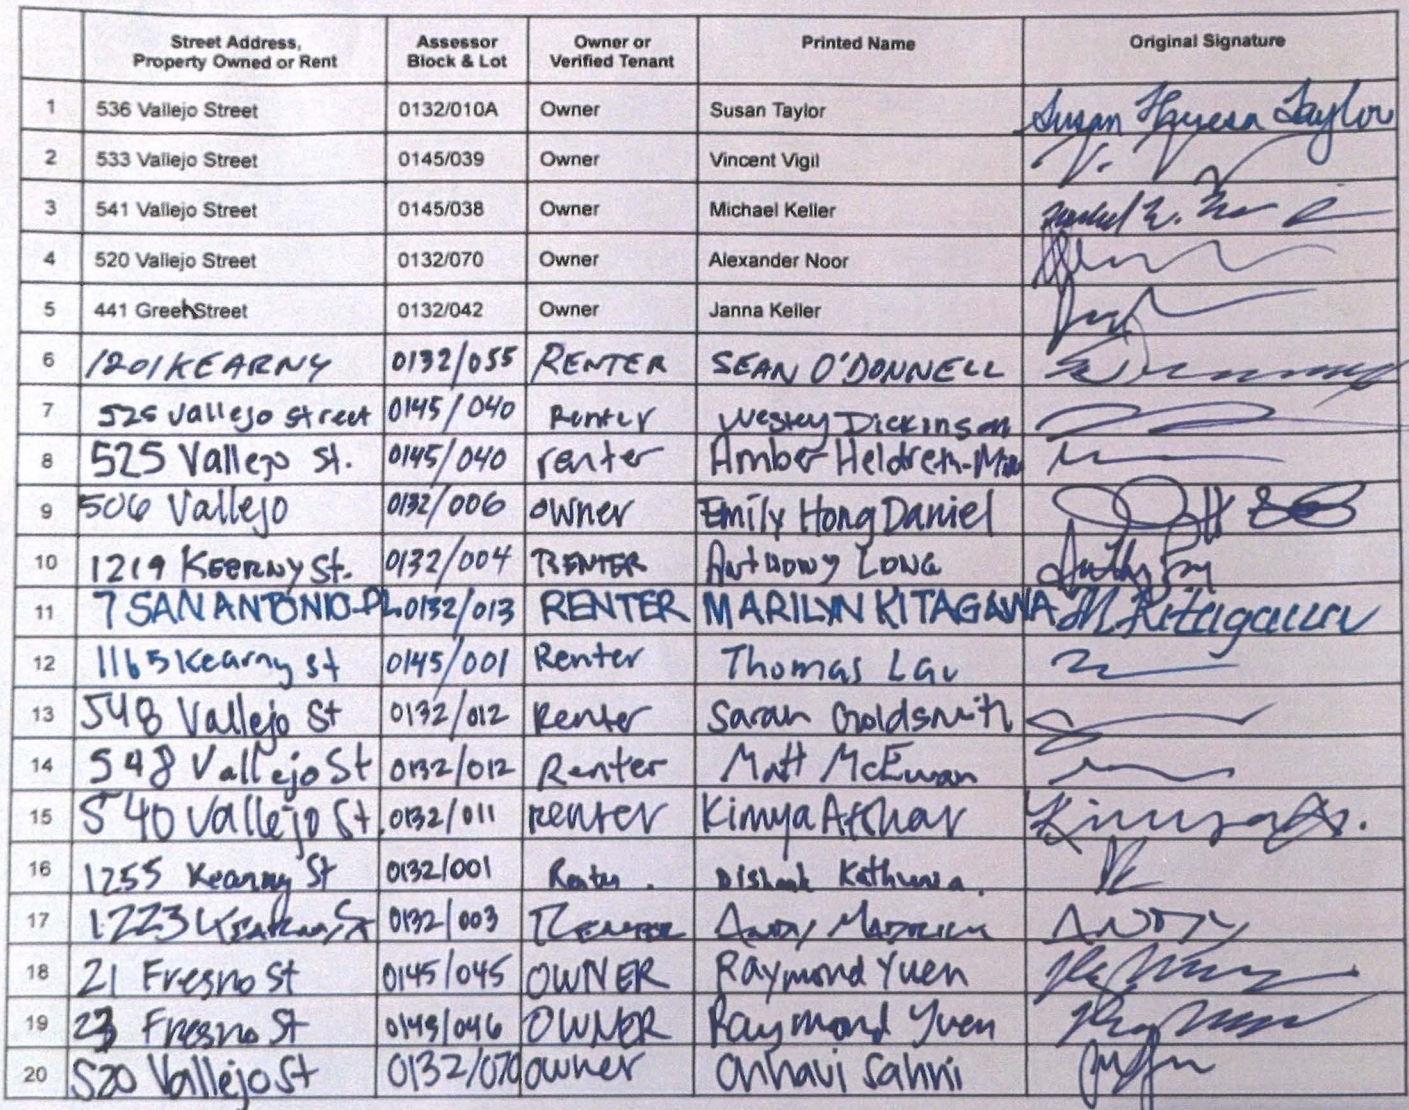 Street Address, Property Owned or Rent Assessor Block & Lot Owner or Verified Tenant Printed Name Original Signature
1 536 Vallejo Street 0132/010A Owner Susan Taylor Susan Taylor
2 533 Vallejo Street 0145/039 Owner Vincent Vigil
3 541 Vallejo Street 0145/038 Owner Michael Keller
4 520 Vallejo Street 0132/070 Owner Alexander Noor
5 441 Green Street 0132/042 Owner Janna Keller
6 1201 KEARNY 0132/055 RENTER SEAN O'DONNELL
7 525 Vallejo Street 0145/040 Renter Wesley Dickinson
8 525 Vallejo St. 0145/040 renter Amber
9 506 Vallejo 0132/006 owner Emily Hong Daniel
10 1219 KEERNY St. 0132/004 RENTER Anthony LONG
11 7 SAN ANTONIO PL 0132/013 RENTER MARILYN KITAGAWA M. Kitagawa
12 1165 Kearny St 0145/001 Renter Thomas Lau
13 548 Vallejo St 0132/012 Renter Sarah Goldsmith
14 548 Vallejo St 0132/012 Renter Matt McEwan
15 540 Vallejo St. 0132/011 renter Kimya Afshar Kimya A.
16 1255 Kearny St 0132/001 Renter.
17 1223 St 0132/003 RENTER ANDY ANDY
18 21 Fresno St 0145/045 OWNER Raymond Yuen
19 23 Fresno St 0145/046 OWNER Raymond Yuen
20 520 Vallejo St 0132/070 owner Sahni